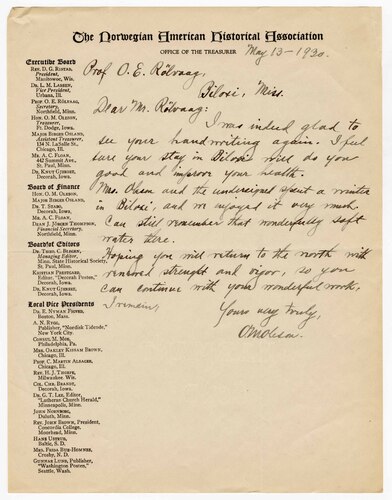 The Norwegian American Historical Association
OFFICE OF THE TREASURER
May 13 - 1930.
Executive Board
REV. D. G. RISTAD,
President,
Manitowoc, Wis.
DR. L. M. LARSEN,
Vice President,
Urbana, Ill.
PROF. O. E. RÖLVAAG,
Secretary,
Northfield, Minn.
HON. O. M. OLESON,
Treasurer,
Ft. Dodge, Iowa.
MAJOR BIRGER OSLAND,
Assistant Treasurer,
134 N. LaSalle St.,
Chicago, Ill.
MR. A. C. FLOAN,
St. Paul, Minn.
DR. KNUT GJERSET,
Decorah, Iowa.
Board of Finance
HON. O. M. OLESON,
MAJOR BIRGER OSLAND,
DR. T. STABO,
Decorah, Iowa.
MR. A. C. FLOAN,
DEAN J. JÖRGEN THOMPSON,
Financial Secretary,
Northfield, Minn.
Board of Editors
DR. THEO. C. BLEGEN,
Managing Editor,
Minn. State Historical Society,
St. Paul, Minn.
KRISTIAN PRESTGARD,
Editor, "Decorah Posten,"
Decorah, Iowa.
DR. KNUT GJERSET,
Decorah, Iowa.
Local Vice Presidents
Boston, Mass.
A. N. RYGG,
Publisher, "Nordisk Tidende,"
New York City.
CONSUL M. MOE,
Philadelphia, Pa.
MRS. OAKLEY KISSAM BROWN,
Chicago, Ill.
PROF. C. MARTIN ALSAGER,
Chicago, Ill.
REV. H. J. THORPE,
Milwaukee, Wis.
COL. CHR. BRANDT,
Decorah, Iowa.
DR. G. T. LEE, Editor,
"Lutheran Church Herald,"
Minneapolis, Minn.
JOHN NORNBORG,
Duluth, Minn.
REV. JOHN BROWN, President,
Concordia College,
Moorhead, Minn.
HANS USTRUD,
Baltic, S. D.
MRS. FRIDA BUE-HOMNES,
Crosby, N. D.
GUNNAR LUND, Publisher,
"Washington Posten,"
Seattle, Wash.
Prof O. E. Rölvaag,
Biloxi, Miss.
Dear Mr. Rölvaag:
I was indeed glad to
see your handwriting again. I feel
sure your stay in Biloxi will do you
good and improve your health.
Mrs. Oleson and the undersigned spent a winter
in Biloxi, and we enjoyed it very much.
Can still remember that wonderfully soft
water there.
Hoping you will return to the north with
renewed strenght and vigor, so you
can continue with your wonderful work,
I remain,
Yours very truly,
O M Oleson.